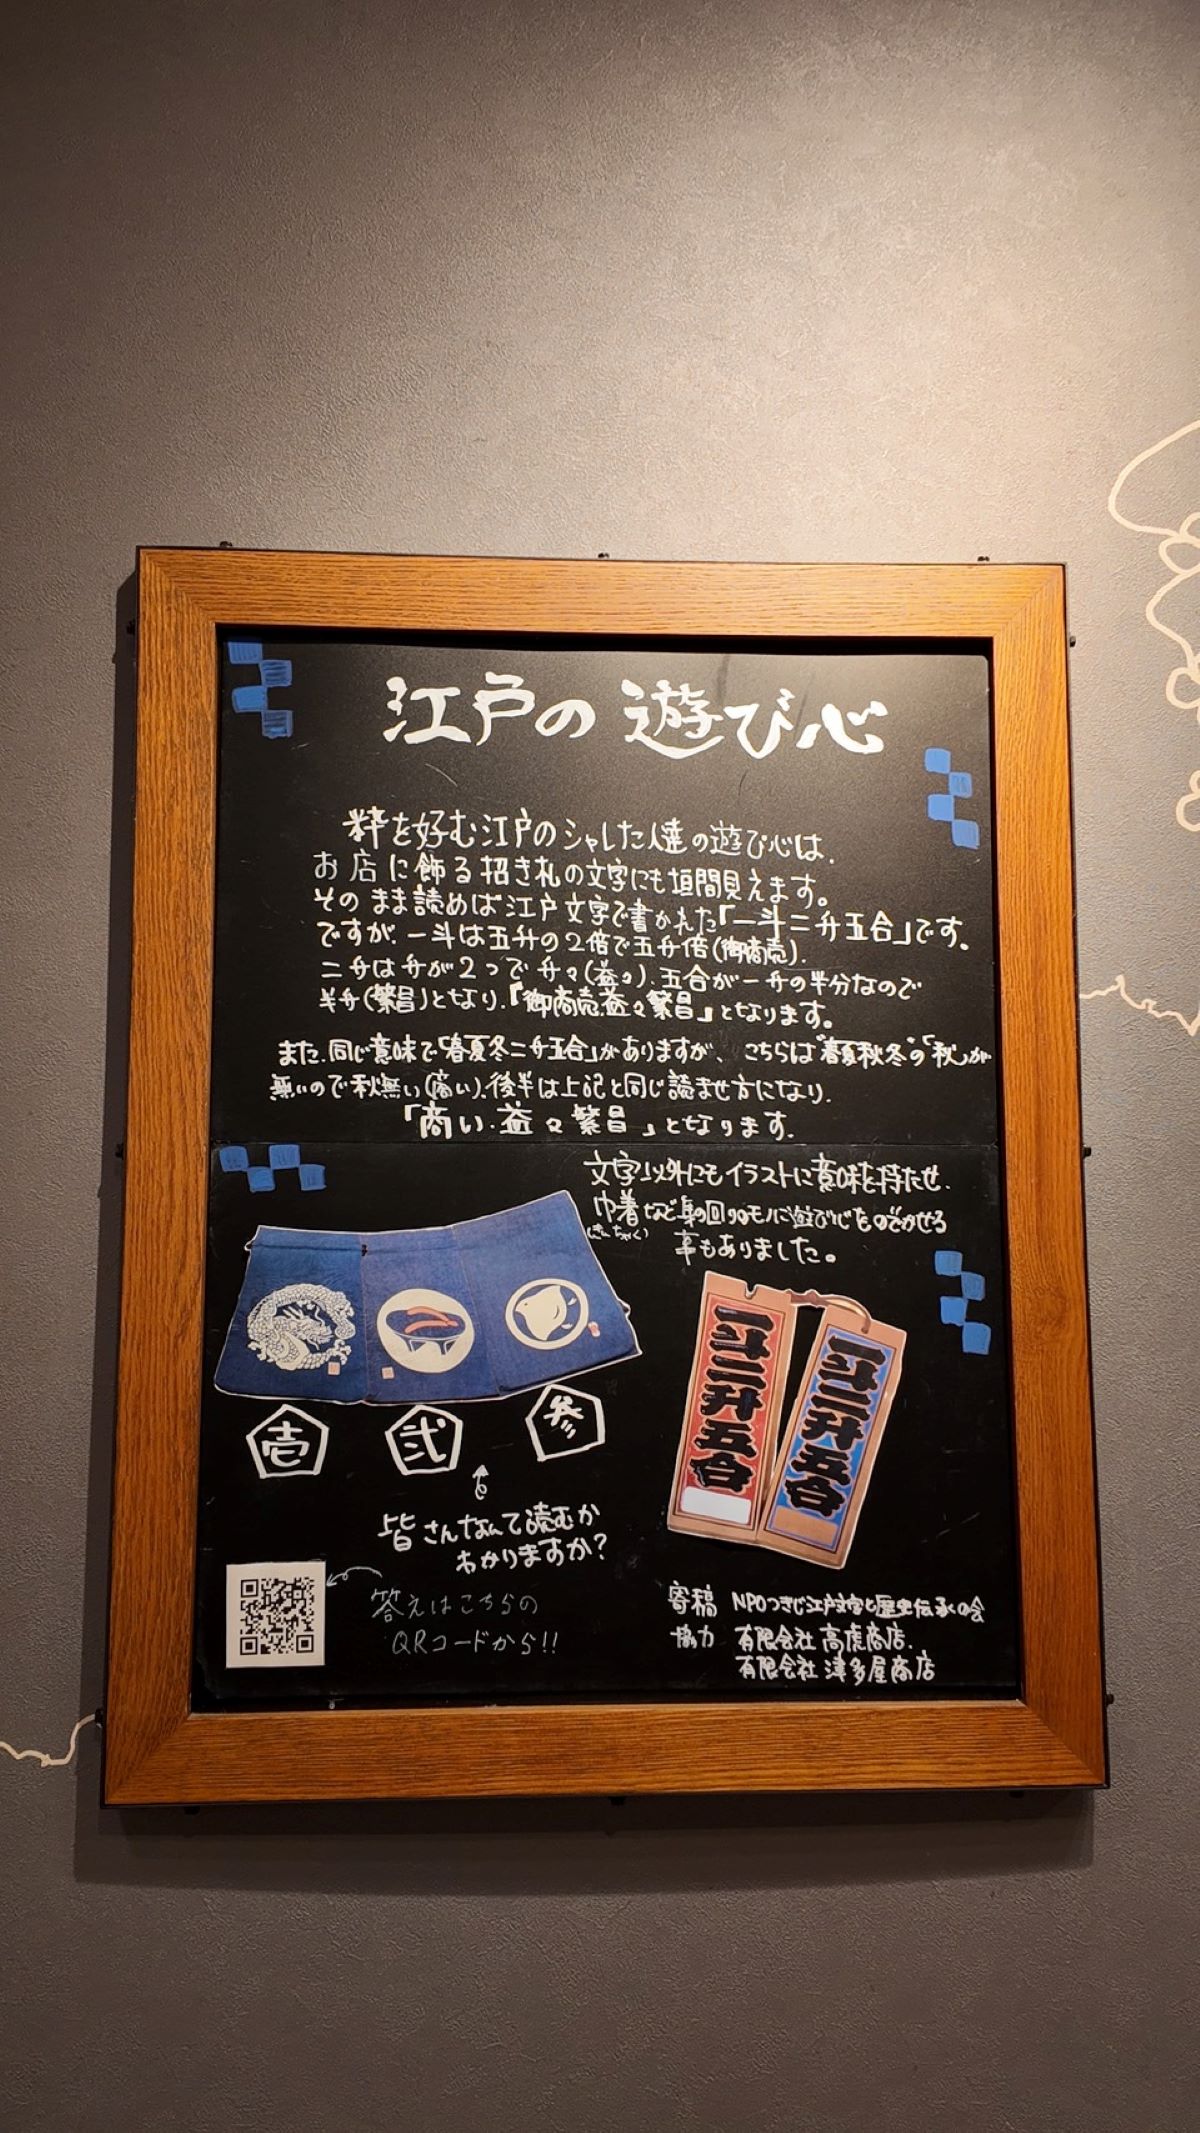 江戸の遊び心
粋を好む江戸のシャレた人達の遊び心は、
お店に飾る招き札の文字にも垣間見えます。
そのまま読めば江戸文字で書かれた「一斗二升五合」です。
ですが、一斗は五升の2倍で五升倍(御商売)、
二升は升が2つで升々(益々)、五合が一升の半分なので
半升(繁昌)となり、「御商売益々繁昌」となります。
また、同じ意味で「春夏冬二升五合」がありますが、こちらは"春夏秋冬"の「秋」が
無いので秋無い(商い)、後半は上記と同じ読ませ方になり、
「商い・益々繁昌」となります。
文字以外にもイラストに意味を持たせ、
巾着など身の回りのモノに遊び心をのぞかせる
(きんちゃく)
事もありました。
一斗二升五合
一斗二升五合
壱
弐
参
皆さんなんて読むか
わかりますか?
答えはこちらの
QRコードから!!
寄稿 NPOつきじ江戸文字と歴史伝承の会
協力 有限会社 高虎商店
有限会社 津多屋商店